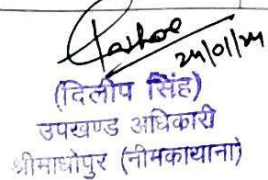 24/01/24
(दिलीप सिंह)
उपखण्ड अधिकारी
श्रीमाधोपुर (नीमकाथाना)